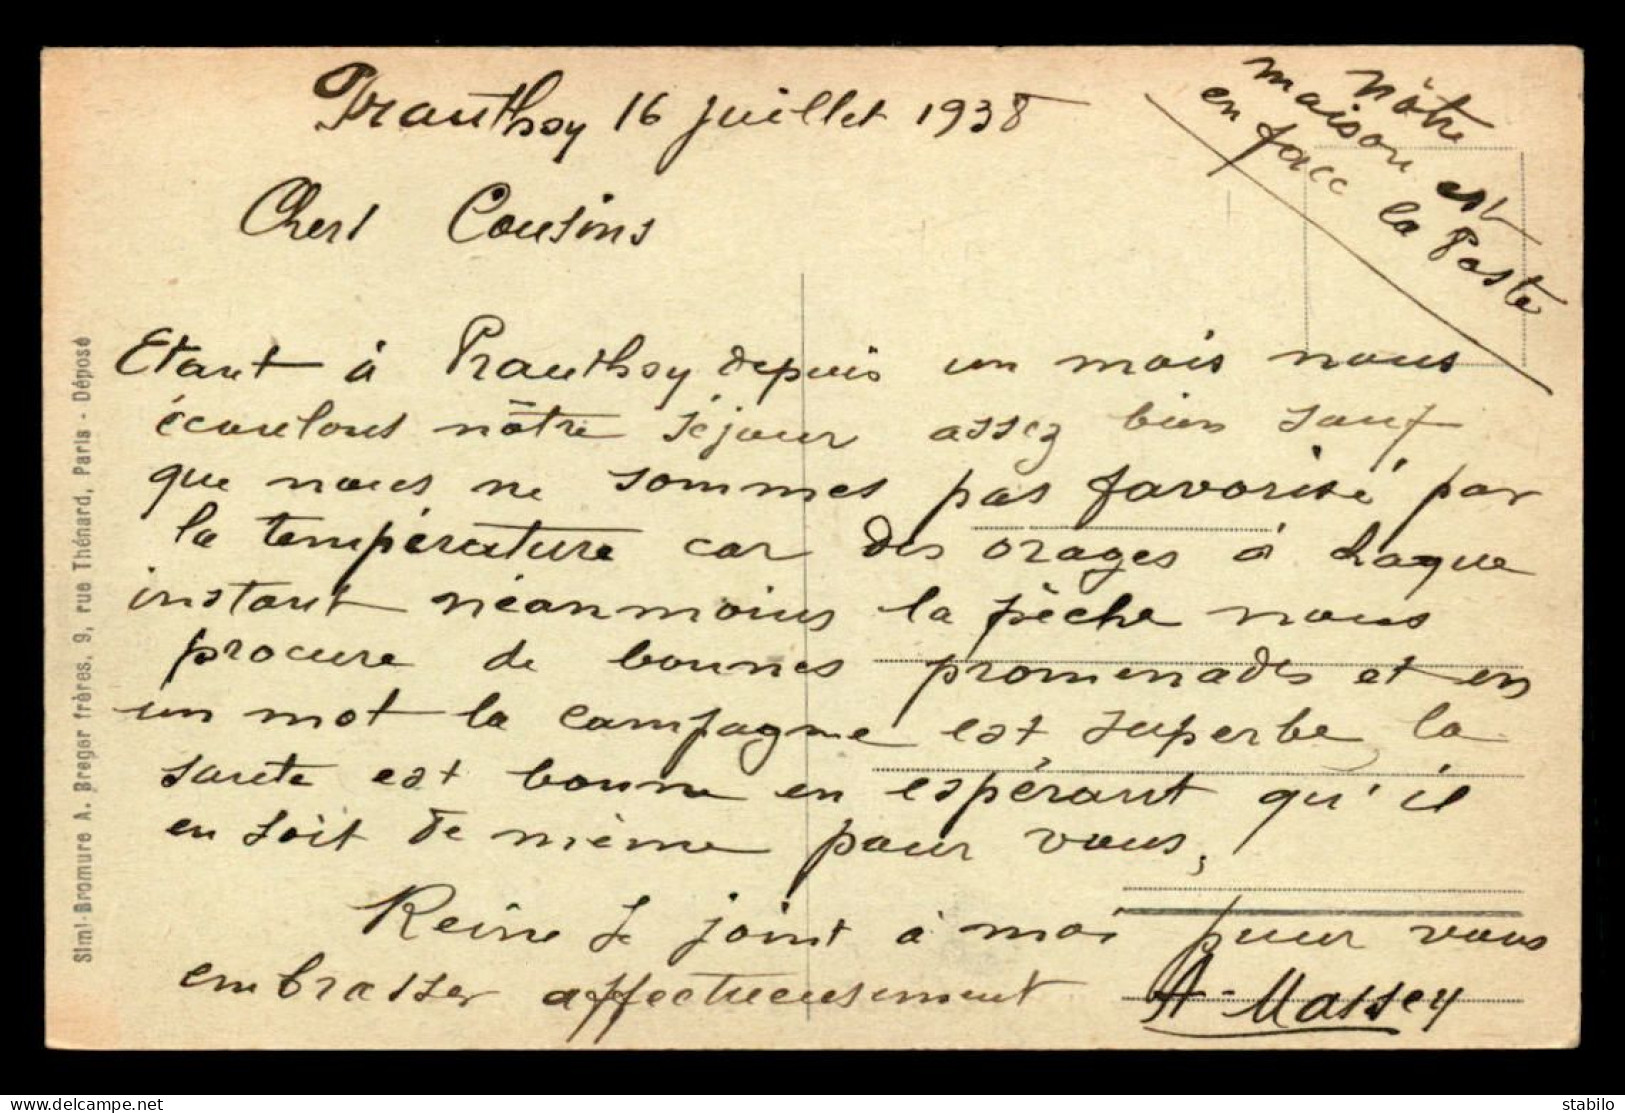 Prauthoy 16 juillet 1938
nôtre
maison est
en face la Poste
Chers Cousins
Etant à Prauthoy depuis un mois nous
écoulons nôtre séjour assez bien sauf
que nous ne sommes pas favorisé par
la température car des orages à chaque
instant néanmoins la pêche nous
procure de bonnes promenades et en
un mot la campagne est superbe, la
santé est bonne en espérant qu'il
en soit de même pour vous,
Reine se joint à moi pour vous
embrasser affectueusement
A. Massey
Simi-Bromure A. Breger frères, 9, rue Thénard, Paris - Déposé
https://www.delcampe.net
stabilo